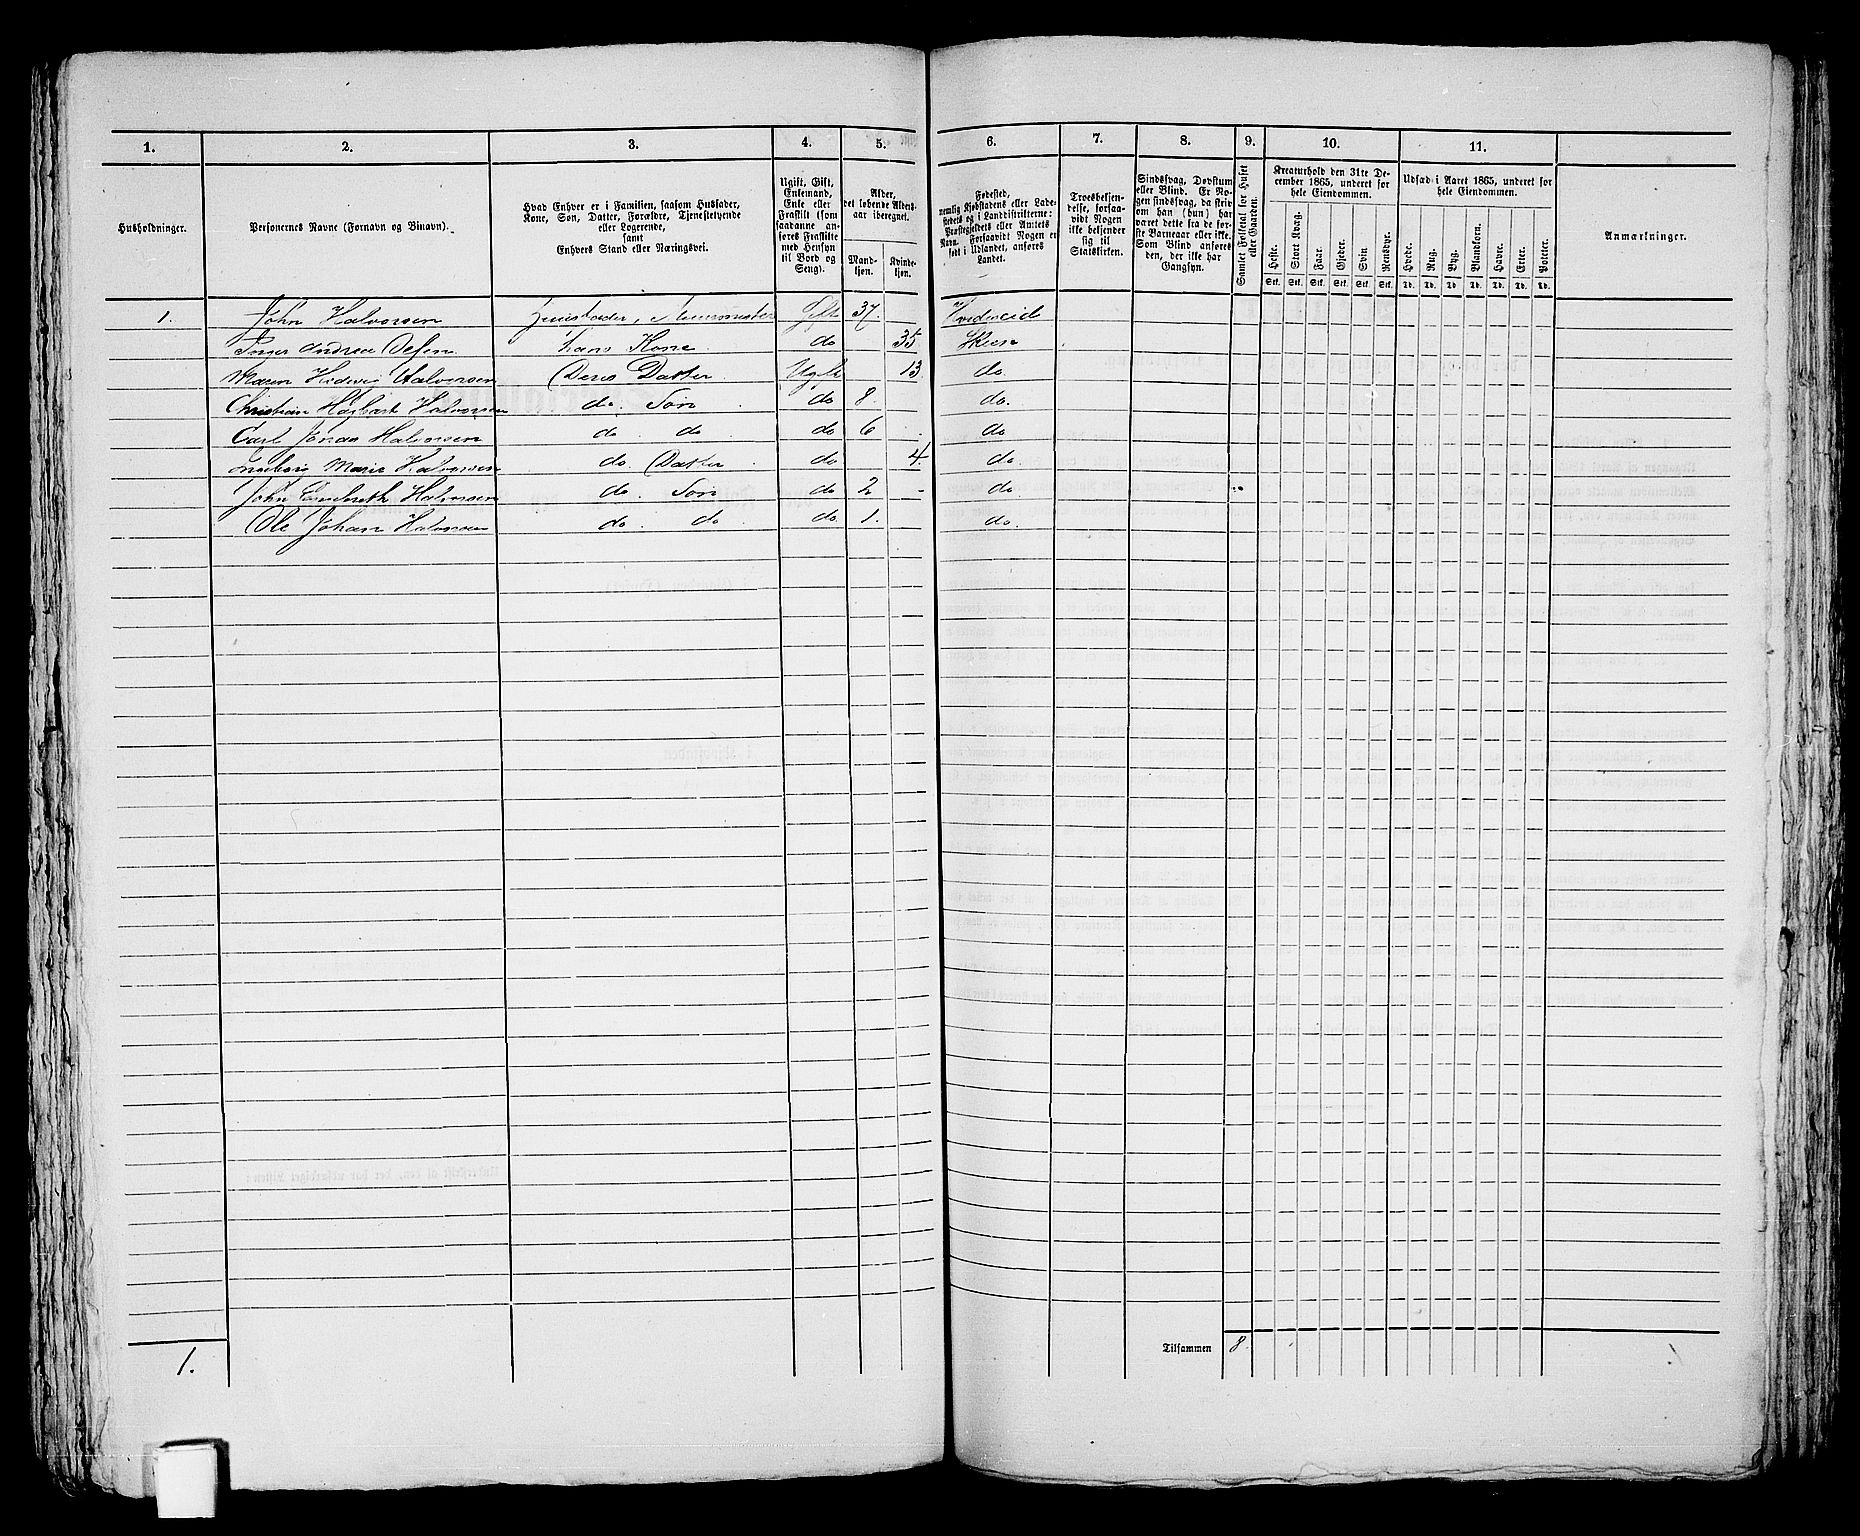 1. 2. 3. 4. 5. 6. 7. 8. 9. 10. 11.
Husholdninger.
Personernes Navne (Fornavn og Binavn).
Hvad Enhver er i Familien, saasom Husfader,
Kone, Søn, Datter, Forældre, Tjenestetyende
eller Logerende,
samt
Enhvers Stand eller Næringsvei.
Ugift, Gift,
Enkemand,
Enke eller
Fraskilt (som
saadanne an-
føres Fraskilte
med Hensyn
til Bord og
Seng).
Alder,
det løbende Alders-
aar iberegnet.
Mand-
kjøn.
Kvinde-
kjøn.
Fødested,
nemlig Kjøbstadens eller Lade-
stedets og i Landdistrikterne:
Præstegjeldets eller Amtets
Navn. Forsaavidt Nogen er
født i Udlandet, anføres
Landet.
Troesbekjen-
delse, forsaa-
vidt Nogen
ikke bekjender
sig til
Statskirken.
Sindssvag, Døvstum
eller Blind. Er No-
gen sindssvag, da skriv
om han (hun) har
været dette fra de før-
ste Barneaar eller ikke.
Som Blind anføres
den, der ikke har
Gangsyn.
Samlet Folketal for Huset
eller Gaarden.
Kreaturhold den 31te De-
cember 1865, underet for
hele Eiendommen.
Heste. Stort Kvæg. Faar. Gjeder. Svin. Rensdyr.
Stk. Stk. Stk. Stk. Stk. Stk.
Udsæd i Aaret 1865, underet for
hele Eiendommen.
Hvede. Rug. Byg. Blandkorn. Havre. Erter. Poteter.
Td. Td. Td. Td. Td. Td. Td.
Anmærkninger.
1. John Halvorsen Huusfader, Muurmester Gift 37. Hvideseid
Inger Andrea Olsen hans Kone do 35 Skien
Maren Hedevig Halvorsen Deres Datter Ugift 13 do.
Christian Hagbart Halvorsen do. Søn do 8. do.
Carl Jonas Halvorsen do. do do 6 do
Ingeborg Marie Halvorsen do. Datter do 4. do.
John Engebreth Halvorsen do. Søn do 2 do.
Ole Johan Halvorsen do. do. do. 1. do.
1.
Tilsammen 8.